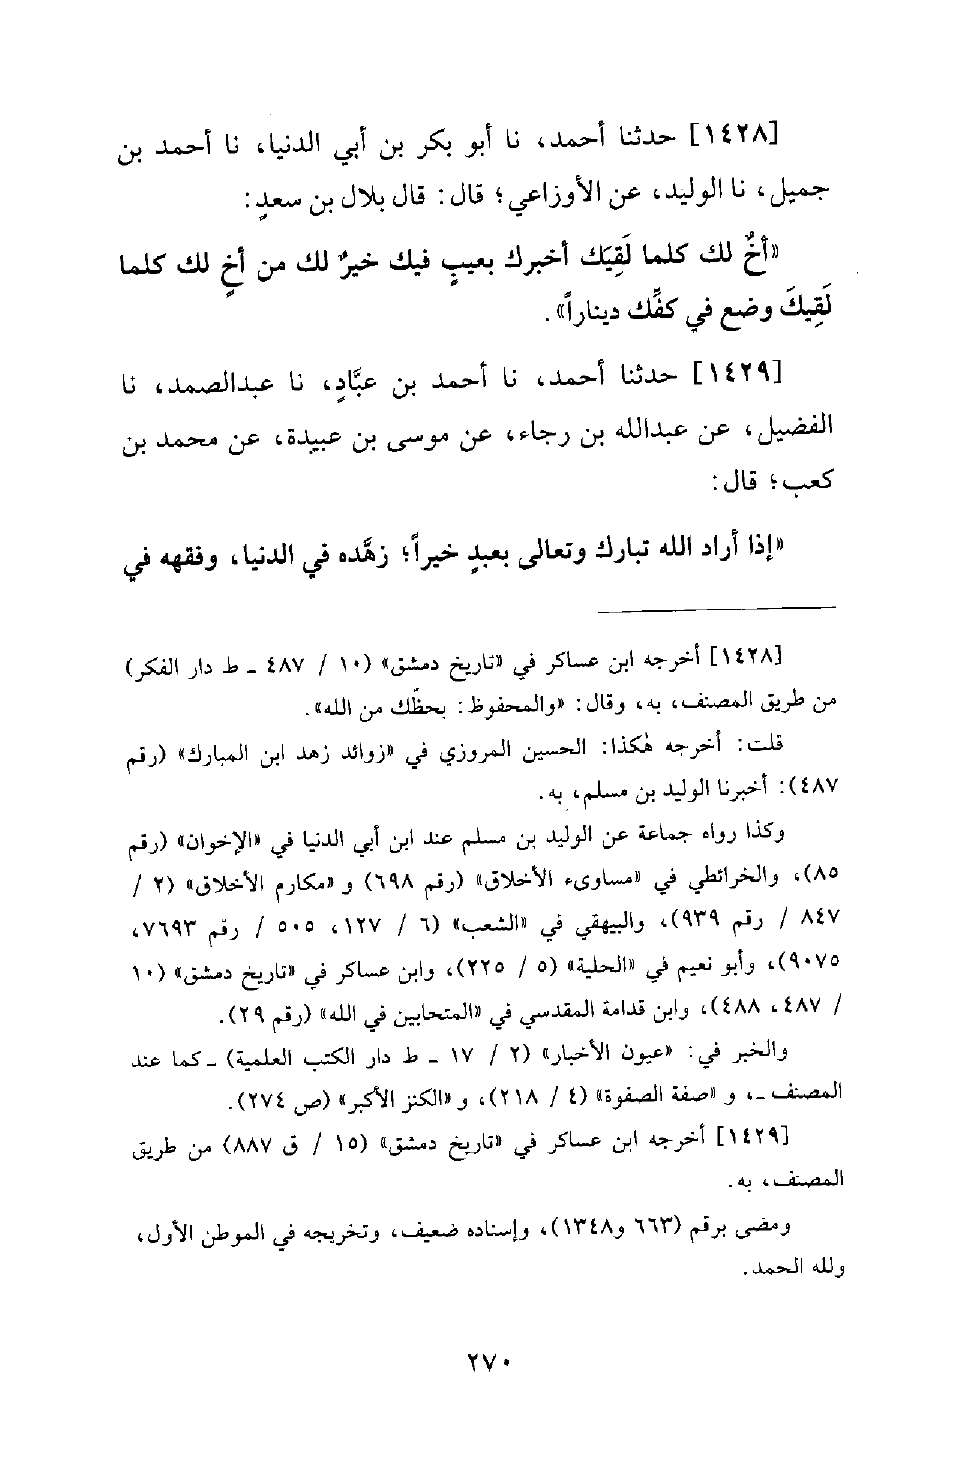 [١٤٢٨] حدثنا أحمد، نا أبو بكر بن أبي الدنيا، نا أحمد بن
جميل، نا الوليد، عن الأوزاعي؛ قال: قال بلال بن سعدٍ:
«أخٌ لك كلما لَقِيَك أخبرك بعيبٍ فيك خيرٌ لك من أخٍ لك كلما
لَقِيكَ وضع في كفِّك ديناراً».
[١٤٢٩] حدثنا أحمد، نا أحمد بن عبَّادٍ، نا عبدالصمد، نا
الفضيل، عن عبدالله بن رجاء، عن موسى بن عبيدة، عن محمد بن
كعب؛ قال:
«إذا أراد الله تبارك وتعالى بعبدٍ خيراً؛ زهَّده في الدنيا، وفقهه في
[١٤٢٨] أخرجه ابن عساكر في «تاريخ دمشق» (١٠ / ٤٨٧ ـ ط دار الفكر)
من طريق المصنف، به، وقال: «والمحفوظ: بحظِّك من الله».
قلت: أخرجه هٰكذا: الحسين المروزي في «زوائد زهد ابن المبارك» (رقم
٤٨٧): أخبرنا الوليد بن مسلم، به.
وكذا رواه جماعة عن الوليد بن مسلم عند ابن أبي الدنيا في «الإخوان» (رقم
٨٥)، والخرائطي في «مساوىء الأخلاق» (رقم ٦٩٨) و «مكارم الأخلاق» (٢ /
٨٤٧ / رقم ٩٣٩)، والبيهقي في «الشعب» (٦ / ١٢٧، ٥٠٥ / رقم ٧٦٩٣،
٩٠٧٥)، وأبو نعيم في «الحلية» (٥ / ٢٢٥)، وابن عساكر في «تاريخ دمشق» (١٠
/ ٤٨٧، ٤٨٨)، وابن قدامة المقدسي في «المتحابين في الله» (رقم ٢٩).
والخبر في: «عيون الأخبار» (٢ / ١٧ ـ ط دار الكتب العلمية) ـ كما عند
المصنف ـ، و «صفة الصفوة» (٤ / ٢١٨)، و «الكنز الأكبر» (ص ٢٧٤).
[١٤٢٩] أخرجه ابن عساكر في «تاريخ دمشق» (١٥ / ق ٨٨٧) من طريق
المصنف، به.
ومضى برقم (٦٦٣ و١٣٤٨)، وإسناده ضعيف، وتخريجه في الموطن الأول،
ولله الحمد.
٢٧٠